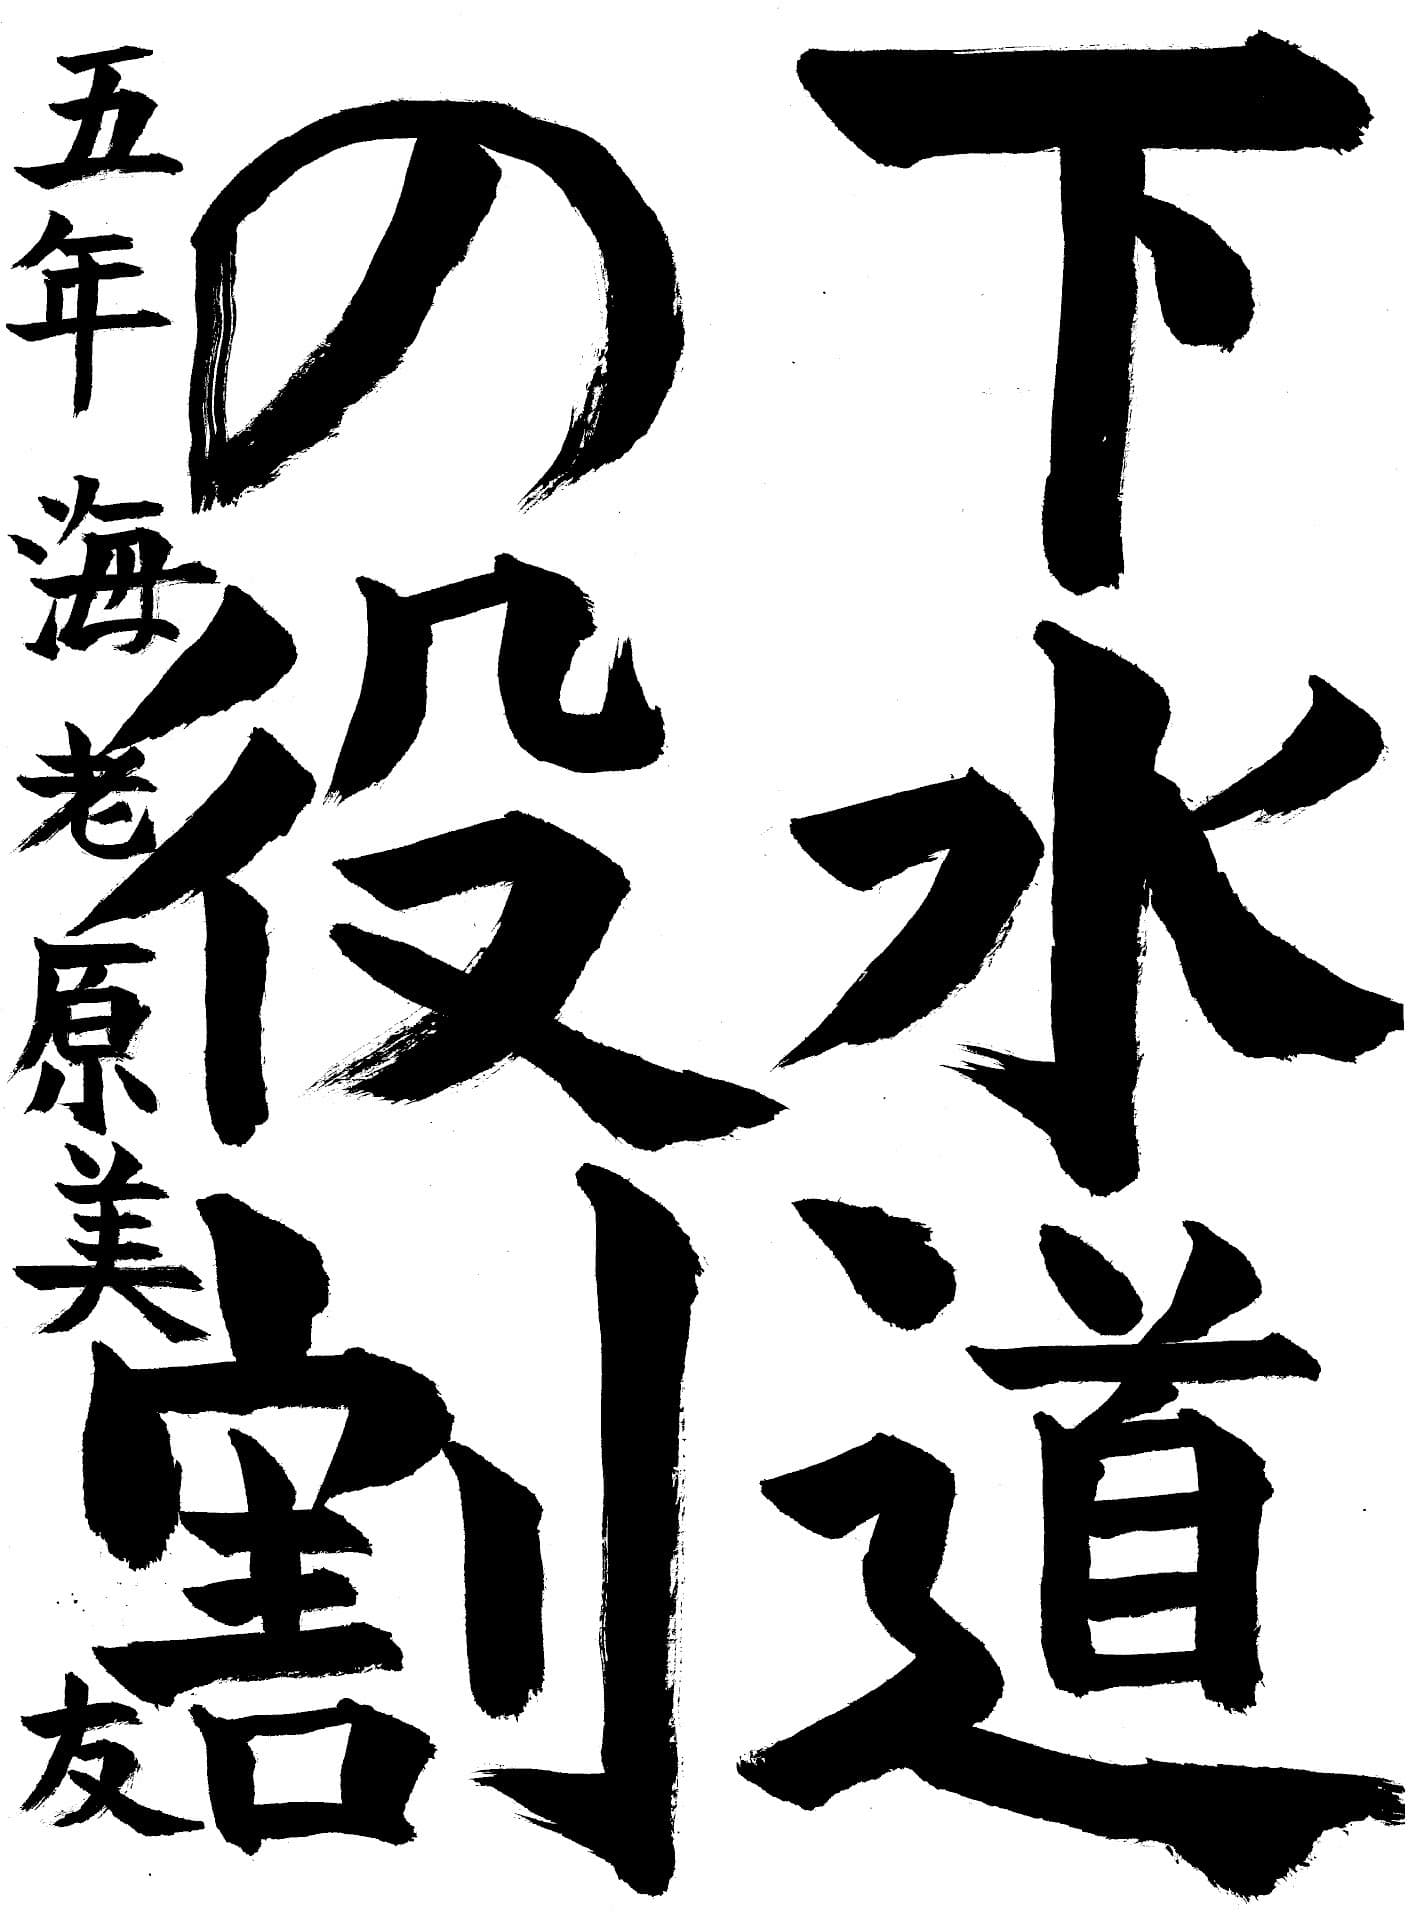 下水道
の役割
五年 海老原美友